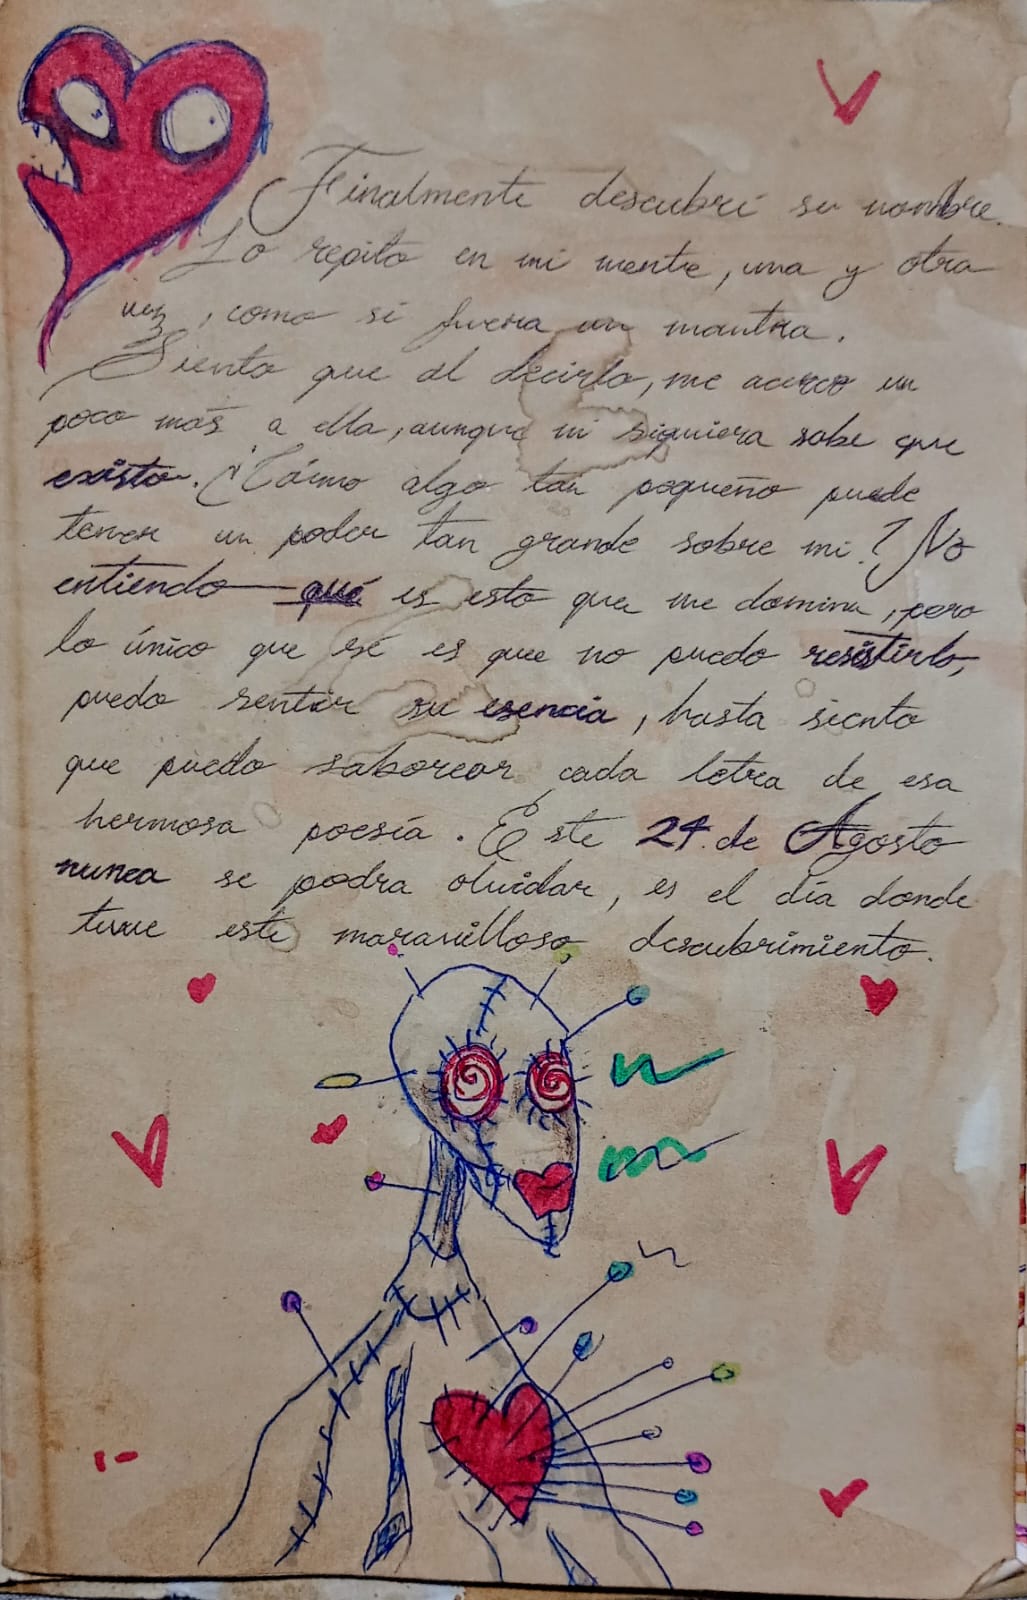 Finalmente descubrí su nombre.
Lo repito en mi mente, una y otra
vez, como si fuera un mantra.
Siento que al decirlo, me acerco un
poco más a ella, aunque ni siquiera sabe que
existo. ¿Cómo algo tan pequeño puede
tener un poder tan grande sobre mi? No
entiendo qué es esto que me domina, pero
lo único que sé es que no puedo resistirlo,
puedo sentir su esencia, hasta siento
que puedo saborear cada letra de esa
hermosa poesía. Este 24 de Agosto
nunca se podra olvidar, es el día donde
tuve este maravilloso descubrimiento.